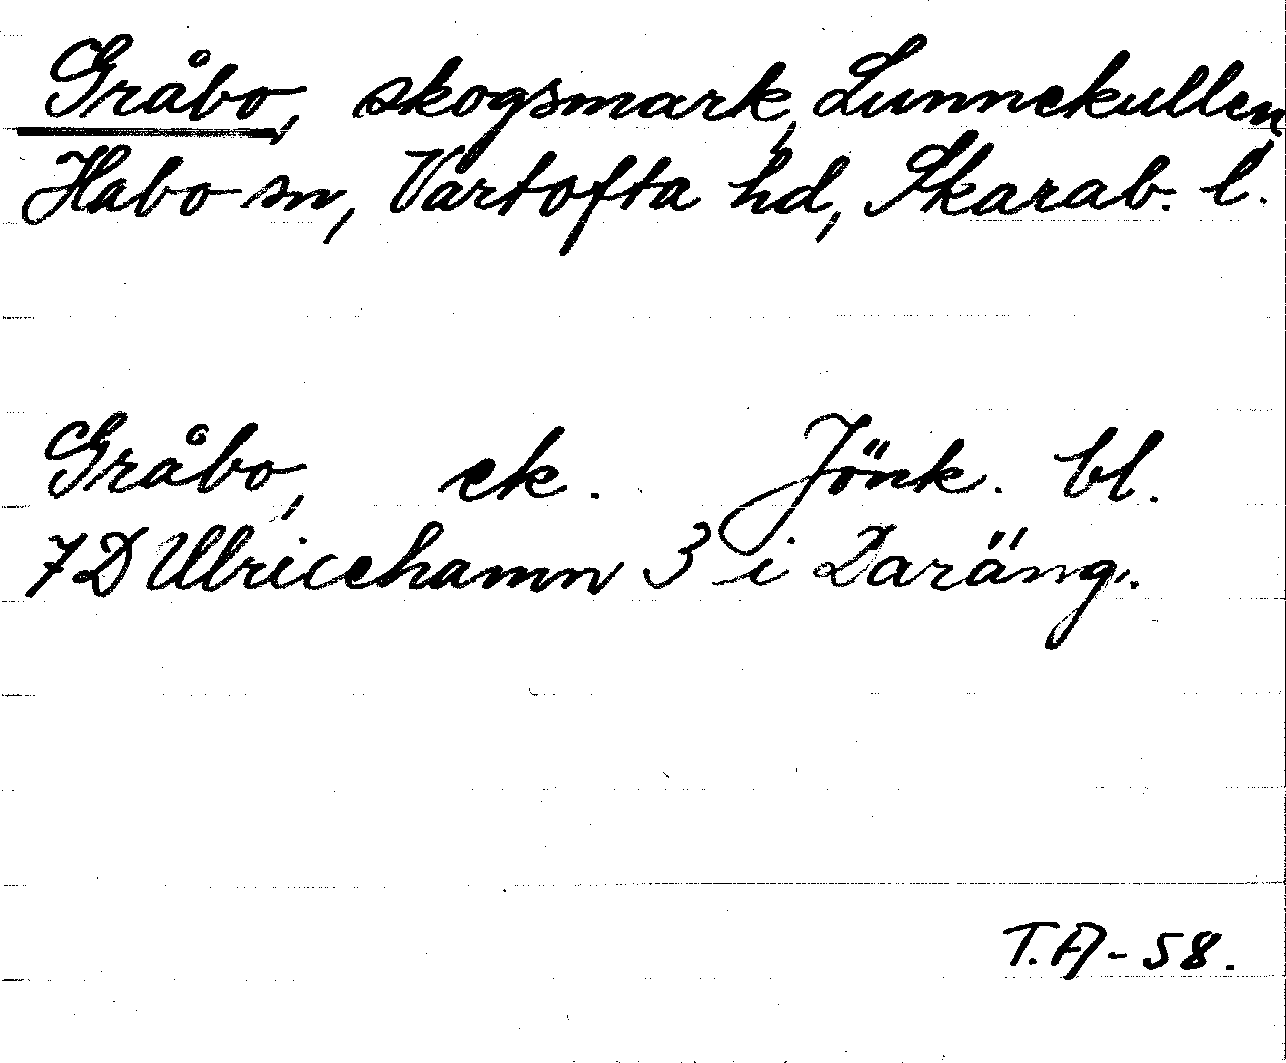 Gråbo, skogsmark, Lunnekullen,
Habo sn, Vartofta hd, Skarab. l.
Gråbo, ek. Jönk. bl.
7D Ulricehamn 3 i Daräng.
T.A-58.